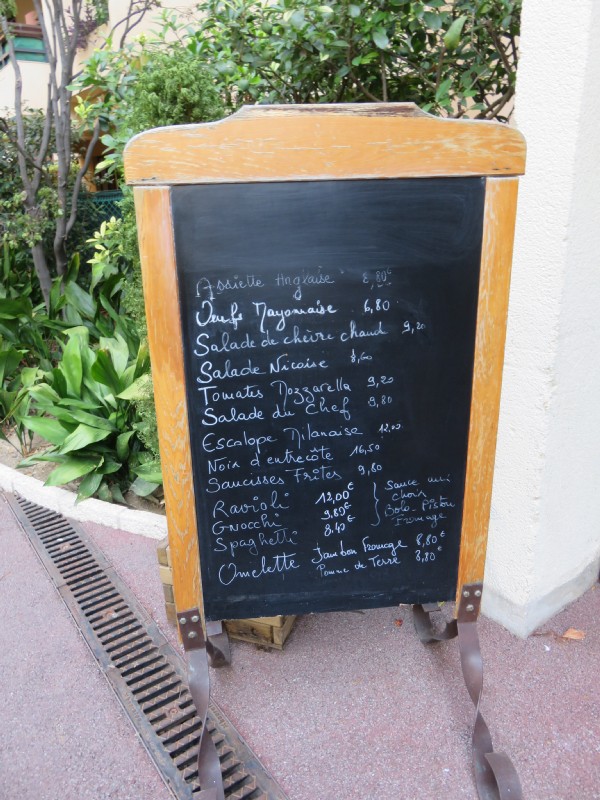 Assiette Anglaise 8,80€
Oeufs Mayonnaise 6,80
Salade de chèvre chaud 9,20
Salade Nicoise 8,60
Tomates Mozzarella 9,20
Salade du Chef 9,80
Escalope Milanaise 12,00
Noix d'entrecôte 16,50
Saucisses Frites 9,80
Ravioli 12,00€
Gnocchi 9.80€
Spaghetti 8.40€
Sauce au
choix
Bolo-Pistou
Fromage
Omelette Jambon Fromage 8,80€
Pomme de Terre 8,80€